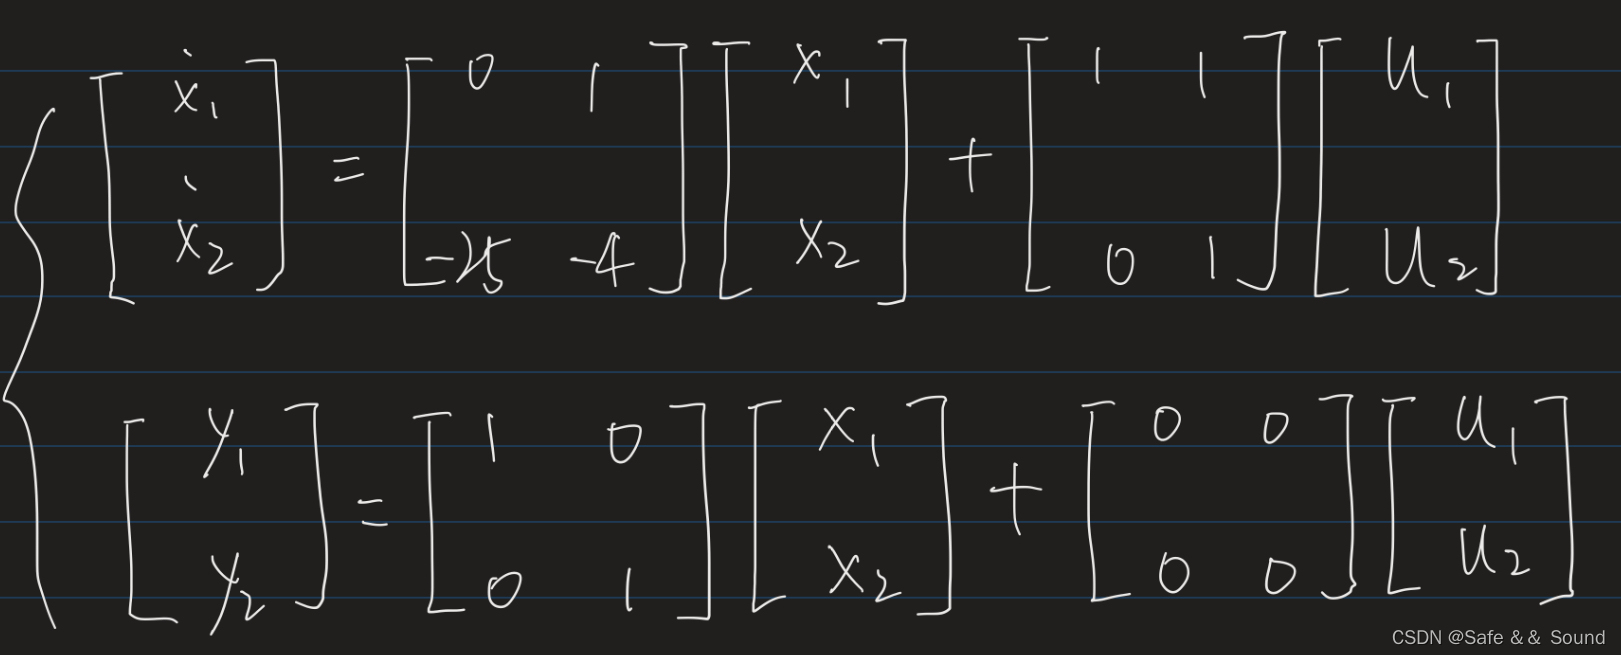 [ẋ₁ ẋ₂] = [0 1 -25 -4] [x₁ x₂] + [1 1 0 1] [u₁ u₂]
[y₁ y₂] = [1 0 0 1] [x₁ x₂] + [0 0 0 0] [u₁ u₂]
CSDN @Safe && Sound